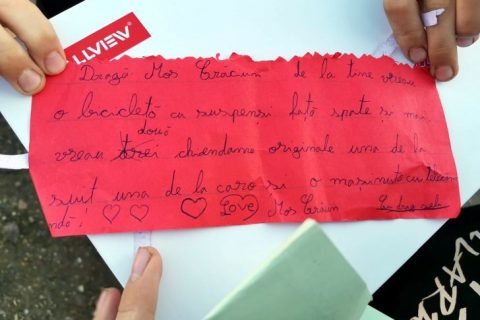 LLVIEW
Dragă Moș Crăciun de la tine vreau
o bicicletă cu suspensi față spate și mai
două
vreau trei chiendame originale una de la
suit una de la caro si o masinuță cu telecom
ndă! Love Moș Crăciun